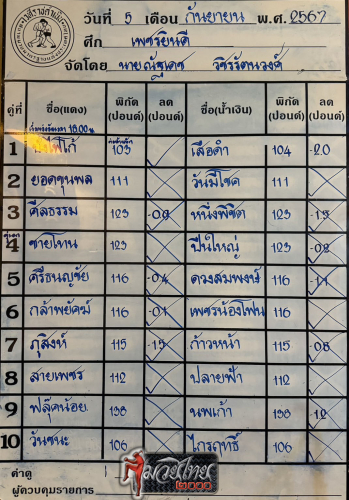 วันที่ 5 เดือน กันยายน พ.ศ. 2567
ศึก เพชรยินดี
จัดโดย นายณัฐเดช วชิรรัตนวงศ์
คู่ที่ ชื่อ(แดง) พิกัด (ปอนด์) ลด (ปอนด์) ชื่อ(น้ำเงิน) พิกัด (ปอนด์) ลด (ปอนด์)
1 103 เสือดำ 104 -2.0
2 ยอดขุนพล 111 วันมีโชค 111
3 ศีลธรรม 123 หนึ่งพิชิต 123
4 ชายโทน 123 ปืนใหญ่ 123
5 ศรีธนญชัย 116 -0.4 ดวงสมพงษ์ 116 -1.1
6 กล้าพยัคฆ์ 116 เพชรน้องโฟน 116
7 ภูสิงห์ 115 ก้าวหน้า 115
8 สายเพชร 112 ปลายฟ้า 112
9 ฟลุ๊คน้อย 138 นพเก้า 138 -1.2
10 วันชนะ 106 ไกรฤทธิ์ 106
ค่าดู
ผู้ควบคุมรายการ
มวยไทย
๒๐๐๐